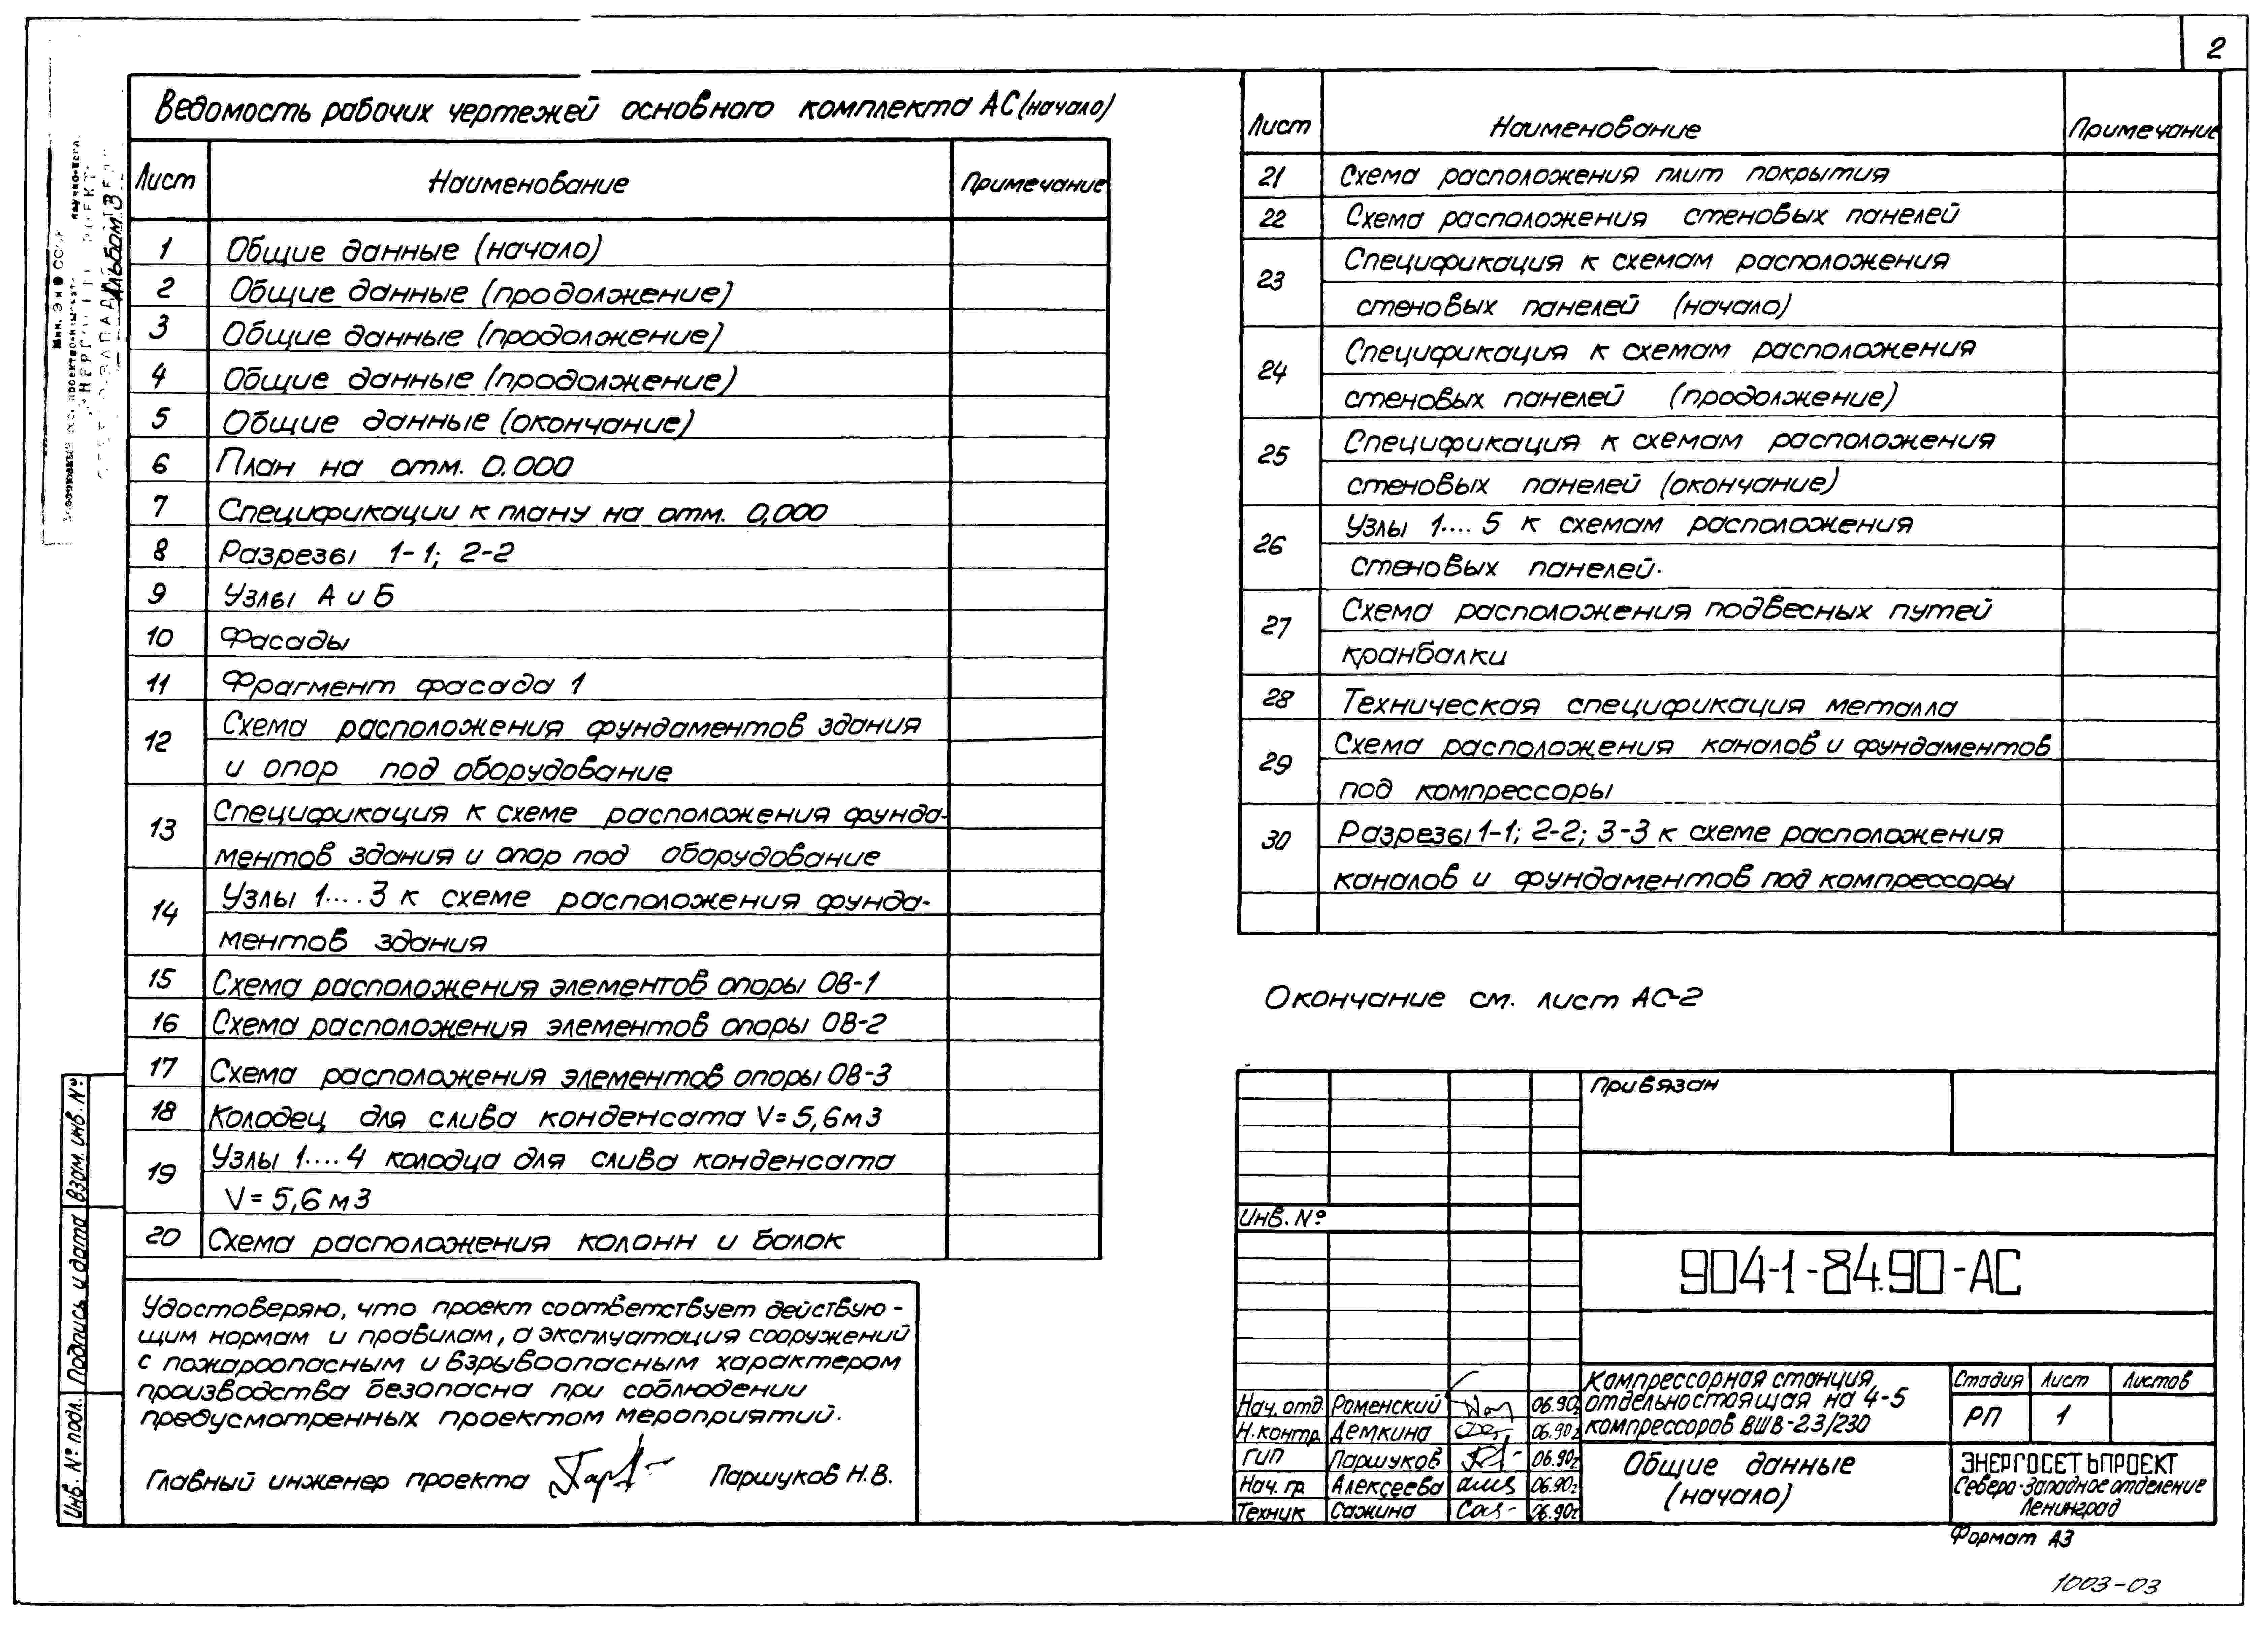 2
Ведомость рабочих чертежей основного комплекта АС (начало)
Лист Наименование Примечание
1 Общие данные (начало)
2 Общие данные (продолжение)
3 Общие данные (продолжение)
4 Общие данные (продолжение)
5 Общие данные (окончание)
6 План на отм. 0.000
7 Спецификации к плану на отм. 0,000
8 Разрезы 1-1; 2-2
9 Узлы А и Б
10 Фасады
11 Фрагмент фасада 1
12 Схема расположения фундаментов здания
и опор под оборудование
13 Спецификация к схеме расположения фунда-
ментов здания и опор под оборудование
14 Узлы 1....3 к схеме расположения фунда-
ментов здания
15 Схема расположения элементов опоры ОВ-1
16 Схема расположения элементов опоры ОВ-2
17 Схема расположения элементов опоры ОВ-3
18 Колодец для слива конденсата V=5,6 м3
19 Узлы 1....4 колодца для слива конденсата
V=5,6 м3
20 Схема расположения колонн и балок
Лист Наименование Примечание
21 Схема расположения плит покрытия
22 Схема расположения стеновых панелей
23 Спецификация к схемам расположения
стеновых панелей (начало)
24 Спецификация к схемам расположения
стеновых панелей (продолжение)
25 Спецификация к схемам расположения
стеновых панелей (окончание)
26 Узлы 1....5 к схемам расположения
стеновых панелей.
27 Схема расположения подвесных путей
кранбалки
28 Техническая спецификация металла
29 Схема расположения каналов и фундаментов
под компрессоры
30 Разрезы 1-1; 2-2; 3-3 к схеме расположения
каналов и фундаментов под компрессоры
Окончание см. лист АС-2
Удостоверяю, что проект соответствует действую-
щим нормам и правилам, а эксплуатация сооружений
с пожароопасным и взрывоопасным характером
производства безопасна при соблюдении
предусмотренных проектом мероприятий.
Главный инженер проекта Паршуков Н.В.
Альбом 3
Взам. инв. №
Подпись и дата
Инв. № подл.
Привязан
Инв. №
904-1-84.90-АС
Нач. отд Роменский 06.90г
Н.контр Демкина 06.90г
ГИП Паршуков 06.90г
Нач. гр Алексеева 06.90г
Техник Сажина 06.90г
Компрессорная станция,
отдельностоящая на 4-5
компрессоров ВШВ-2.3/230
Стадия Лист Листов
РП 1
Общие данные
(начало)
ЭНЕРГОСЕТЬПРОЕКТ
Северо-Западное отделение
Ленинград
Формат А3
1003-03